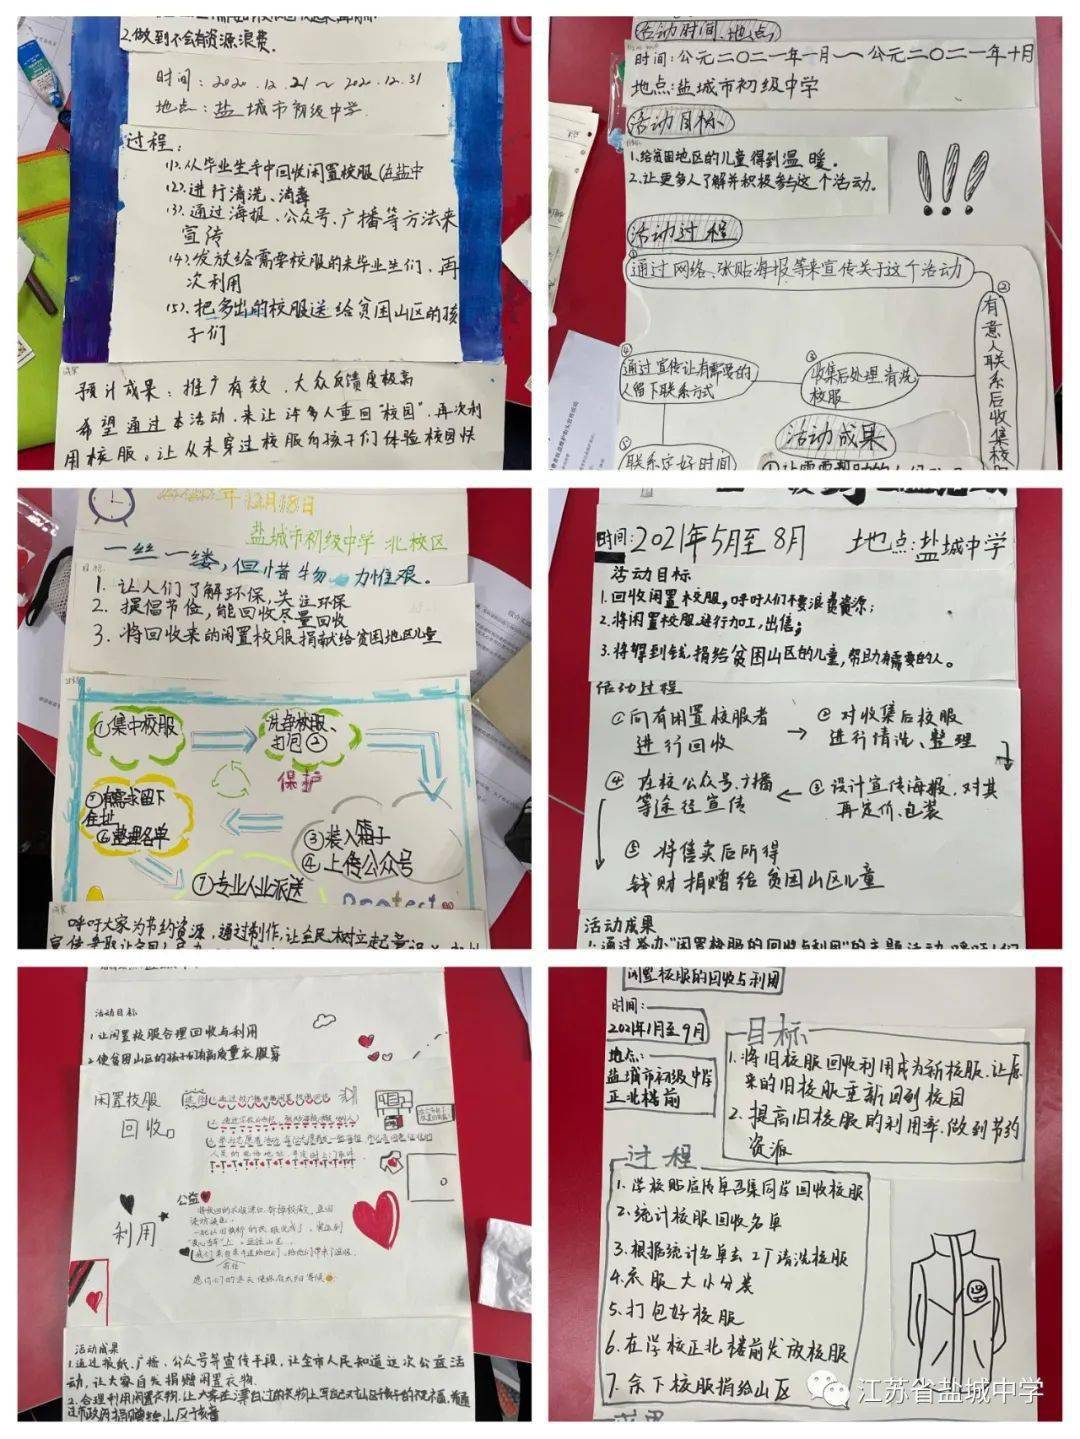 2.做到不会有资源浪费.
时间：2020.12.21～2020.12.31
地点：盐城市初级中学.
过程：
(1).从毕业生手中回收闲置校服(在盐中
(2).进行清洗、消毒
(3).通过海报、公众号、广播等方法来
宣传
(4).发放给需要校服的未毕业生们、再
次利用
(5).把多出的校服送给贫困山区的孩
子们
预计成果：推广有效、大众反馈度极高
希望通过本活动，来让许多人重回"校园"，再次利
用校服。让从未穿过校服的孩子们体验校园快
活动时间、地点
时间：公元二〇二一年一月～公元二〇二一年十月
地点：盐城市初级中学
活动目标
1.给贫困地区的儿童得到温暖.
2.让更多人了解并积极参与这个活动.
活动过程
①
通过网络、张贴海报等来宣传关于这个活动
②
有意人联系后收集校
③
收集后处理清洗
校服
④
通过宣传让有需要的
人留下联系方式
⑤
联系定好时间
活动成果
年12月18日
盐城市初级中学 北校区
一丝一缕,但惜物力惟艰.
目标
1. 让人们了解环保,关注环保
2. 提倡节俭,能回收尽量回收
3. 将回收来的闲置校服捐献给贫困地区儿童
①集中校服
洗净校服、
打包②
保护
③装入箱子
④上传公众号
⑤有需求留下
住址
⑥整理名单
⑦专业人业派送
Protect
呼吁大家为节约资源，通过制作,让全民树立起意识
时间:2021年5月至8月 地点:盐城中学
活动目标
1.回收闲置校服,呼吁人们不要浪费资源；
2.将闲置校服进行加工,出售；
3.将得到钱捐给贫困山区的儿童,帮助有需要的人。
活动过程
①向有闲置校服者
进行回收
② 对收集后校服
进行清洗、整理
③设计宣传海报,对其
再定价、包装
④ 在校公众号、广播
等途径宣传
⑤ 将售卖后所得
钱财捐赠给贫困山区儿童
活动成果
1.通过举办"闲置校服的回收与利用"的主题活动,呼吁人们
活动目标
1.让闲置校服合理回收与利用
2.使贫困山区的孩子们有高质量衣服穿
闲置校服
回收
公益
利用
活动成果
1.通过报纸、广播、公众号等宣传手段，让全市人民知道这次公益活
动，让大家自发捐赠闲置衣物.
闲置校服的回收与利用
时间:
2021年1月至9月
地点:
盐城市初级中学
正北楼前
目标
1.将旧校服回收利用成为新校服.让原
来的旧校服重新回到校园
2.提高旧校服的利用率.做到节约
资源
过程
1.学校贴宣传单召集同学回收校服
2.统计校服回收名单
3.根据统计名单去工厂清洗校服
4.衣服大小分装
5.打包好校服
6.在学校正北楼前发放校服
7.余下校服捐给山区
江苏省盐城中学